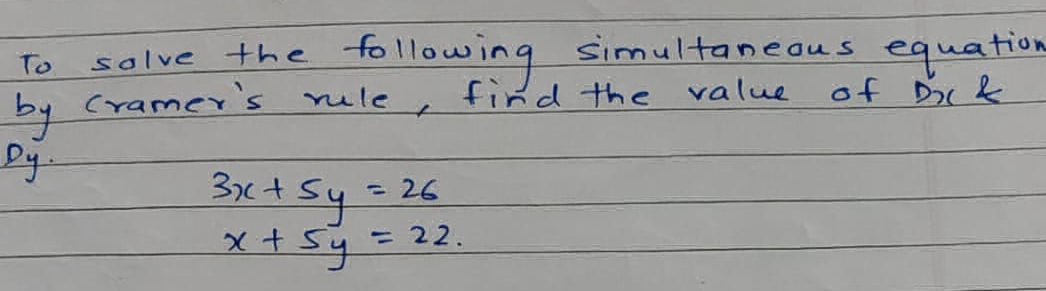 To solve the following simultaneous equation
by Cramer's rule, find the value of Dx &
Dy.
3x + 5y = 26
x + 5y = 22.